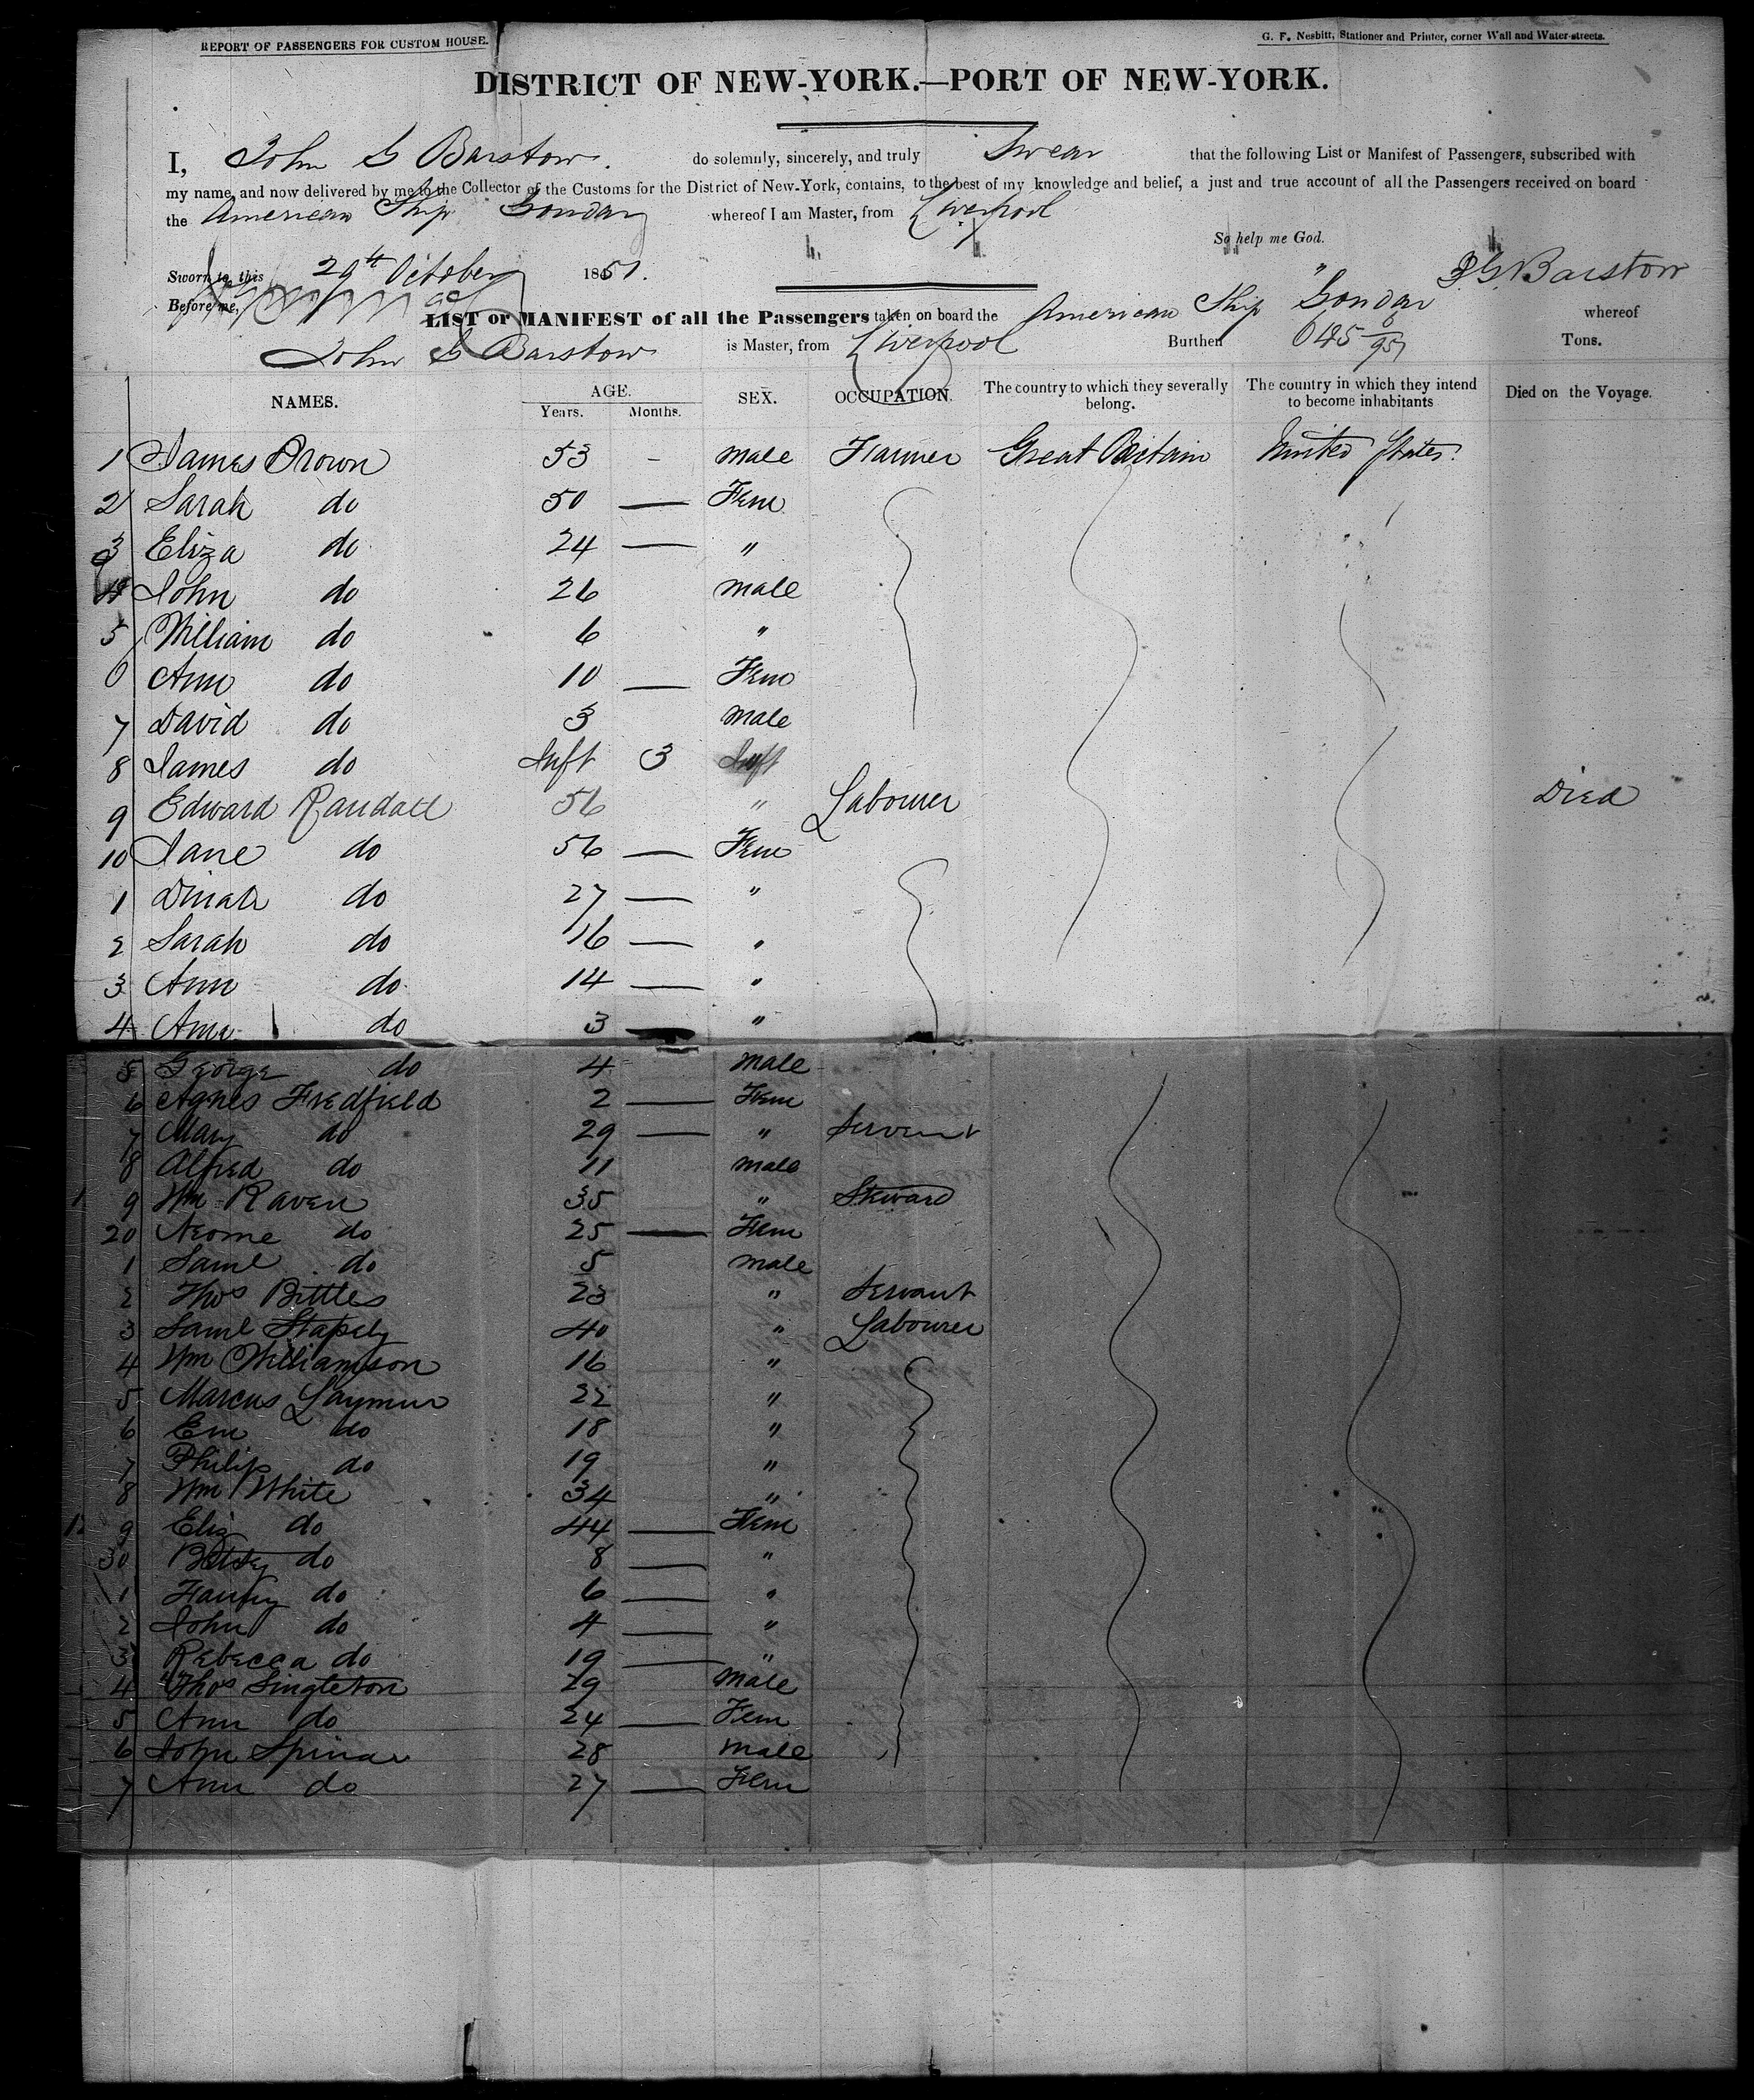 REPORT OF PASSENGERS FOR CUSTOM HOUSE.
G. F. Nesbitt, Stationer and Printer, corner Wall and Water-streets.
DISTRICT OF NEW-YORK.—PORT OF NEW-YORK.
I, John G Barstow do solemnly, sincerely, and truly Swear that the following List or Manifest of Passengers, subscribed with
my name, and now delivered by me to the Collector of the Customs for the District of New-York, contains, to the best of my knowledge and belief, a just and true account of all the Passengers received on board
the American Ship Gondar whereof I am Master, from Liverpool
So help me God.
Sworn to this 29th October 1851.
J G Barstow
Before me,
LIST or MANIFEST of all the Passengers taken on board the American Ship Gondar whereof
John G Barstow is Master, from Liverpool Burthen 645 6/95 Tons.
NAMES. AGE. Years. Months. SEX. OCCUPATION. The country to which they severally belong. The country in which they intend to become inhabitants Died on the Voyage.
1 James Brown 53 - Male Farmer Great Britain United States.
2 Sarah do 50 — Fem
3 Eliza do 24 — "
4 John do 26 Male
5 William do 6 "
6 Ann do 10 — Fem
7 David do 3 Male
8 James do Inft 3
9 Edward Randall 56 " Labourer Died
10 Jane do 56 — Fem
1 Dinah do 27 — "
2 Sarah do 16 — "
3 Ann do 14 — "
4 do 3 — "
5 George do 4 Male
6 Agnes Fredfield 2 — Fem
7 Mary do 29 — " Servant
8 Alfred do 11 Male
9 Wm Raven 35 " Steward
20 Neome do 25 — Fem
1 Saml do 5 Male
2 Thos Bittles 23 " Servant
3 Saml Stapely 40 " Labourer
4 Wm Williamson 16 "
5 Marcus 22 "
6 Em do 18 "
7 Philip do 19 "
8 Wm White 34 "
9 Eliz do 44 — Fem
30 Betsy do 8 — "
1 Fanny do 6 — "
2 John do 4 — "
3 Rebecca do 19 — "
4 Thos Singleton 29 Male
5 Ann do 24 — Fem
6 John 28 Male
7 Ann do 27 — Fem